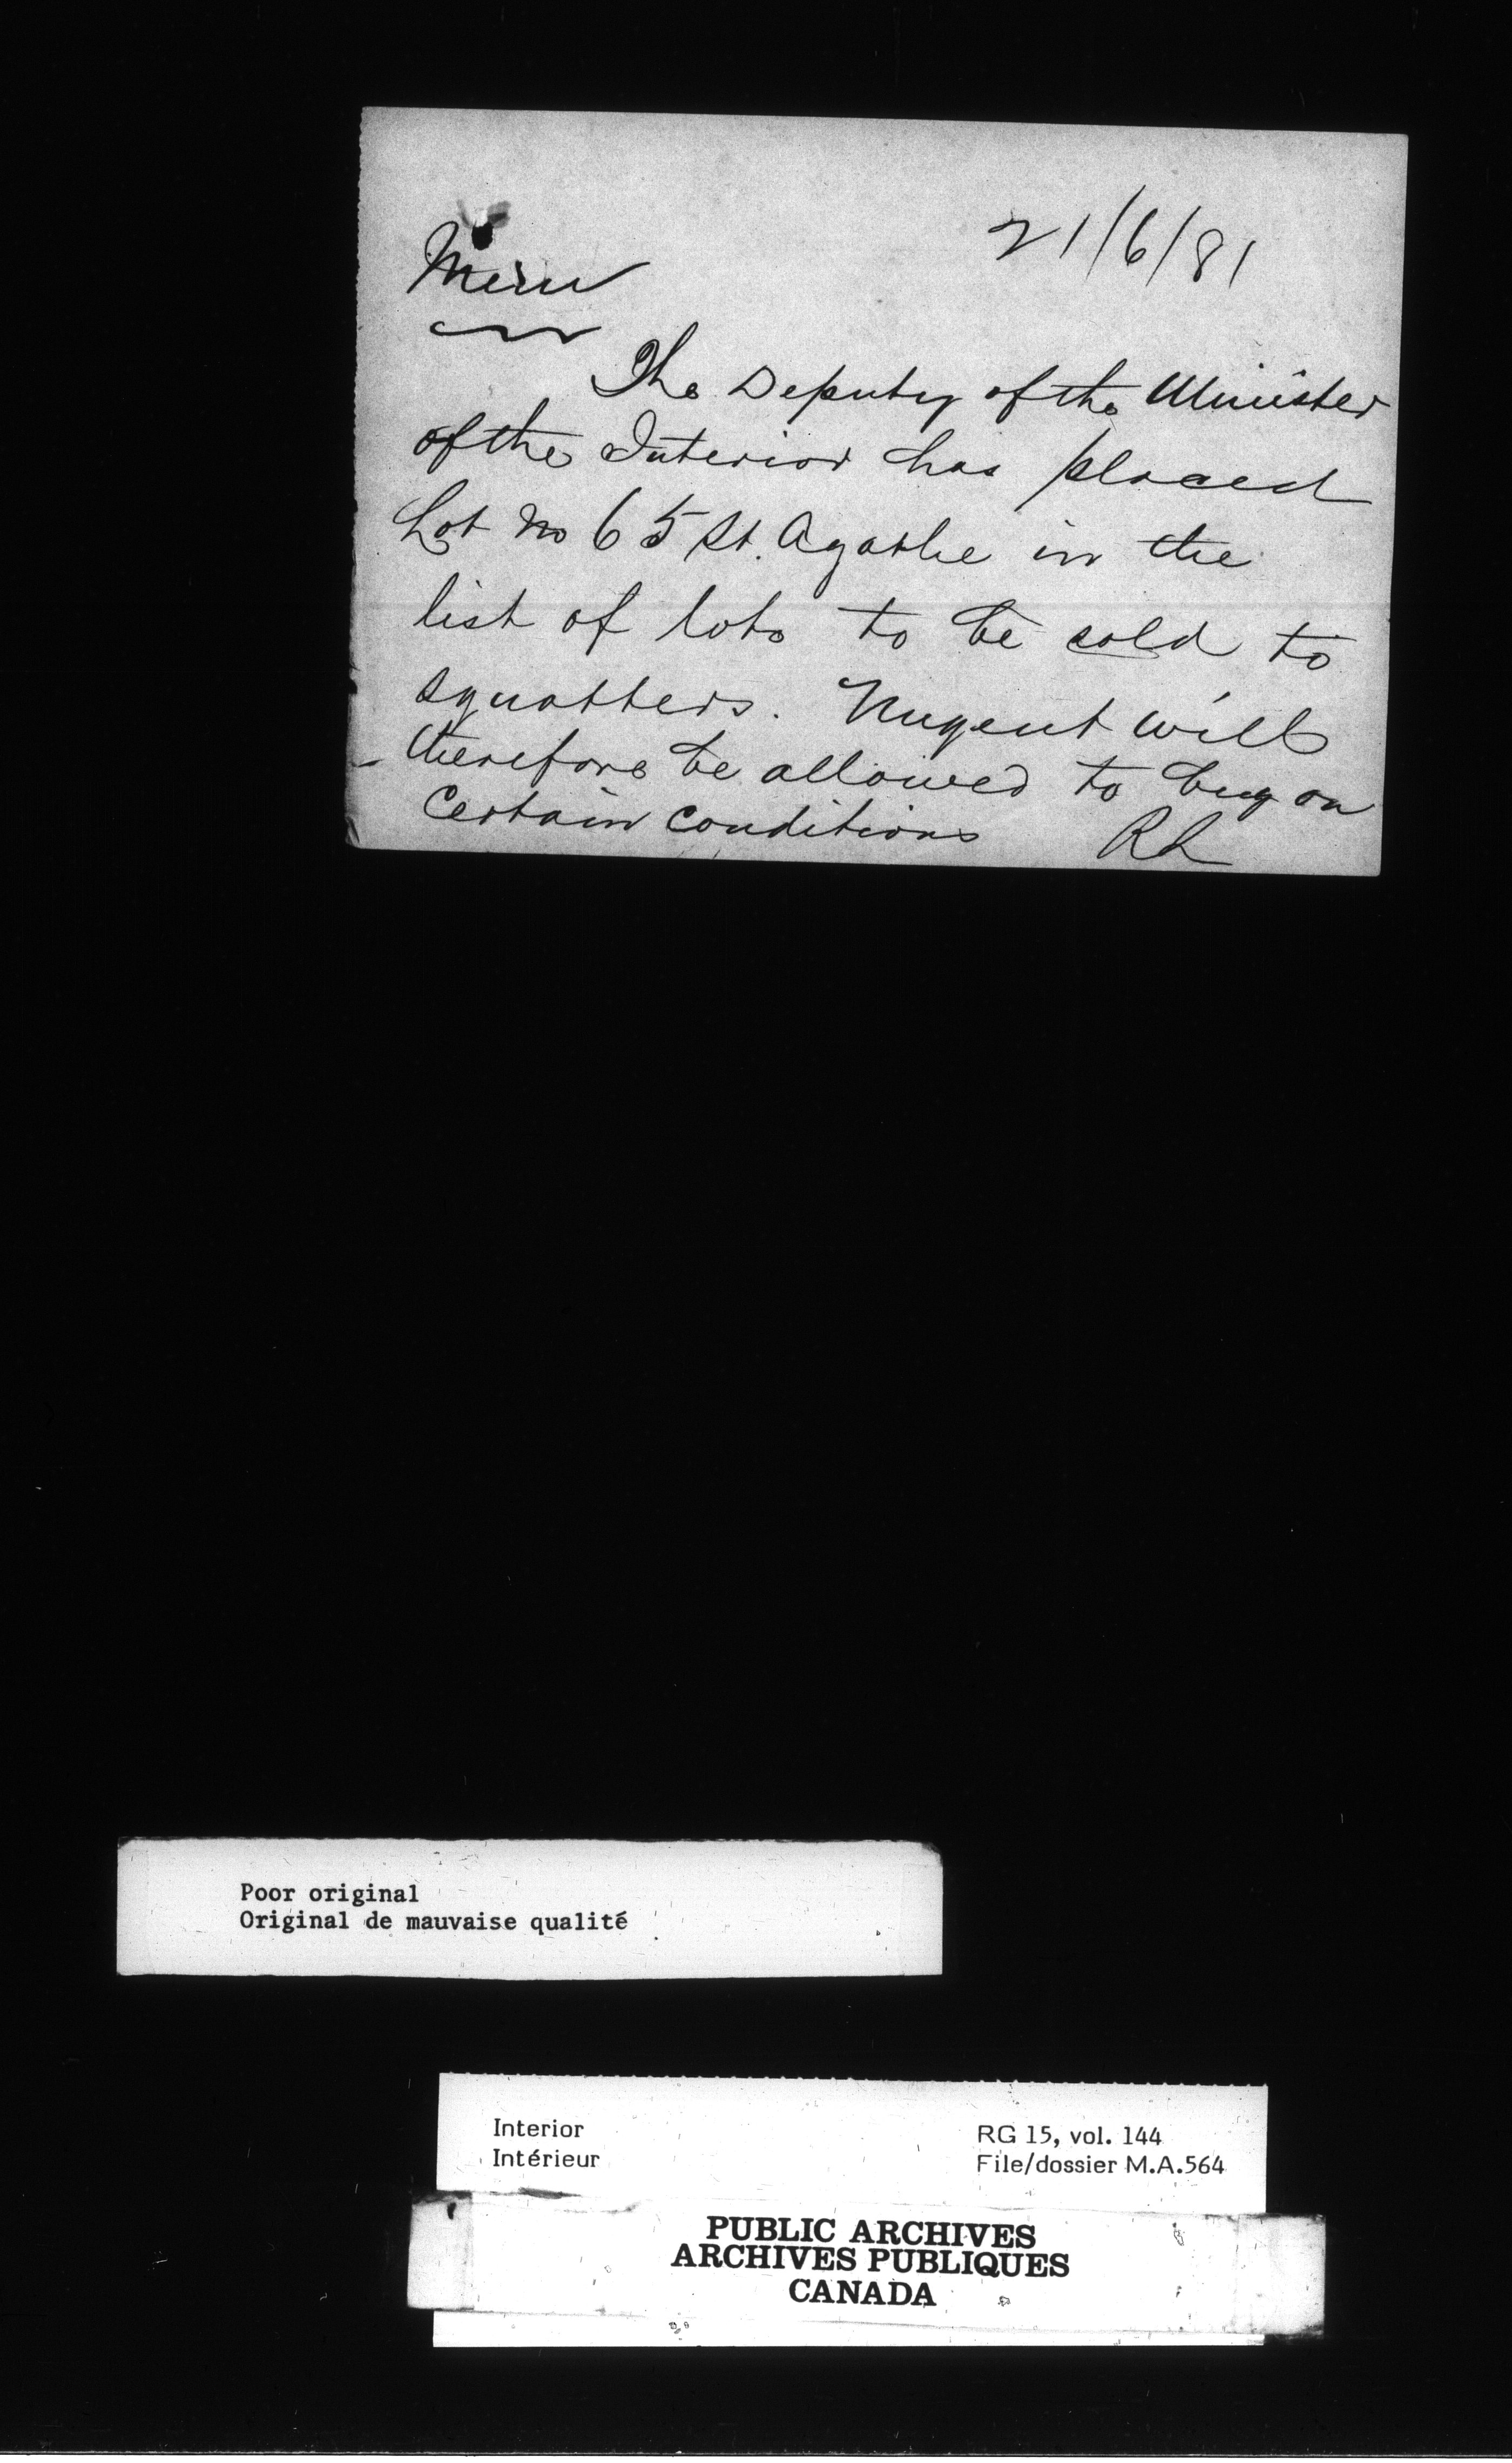 21/6/81
Mem
The Deputy of the Minister
of the Interior has placed
Lot No 65 St. Agathe in the
list of lots to be sold to
squatters. Nugent will
therefore be allowed to buy on
certain conditions
Poor original
Original de mauvaise qualité
Interior
Intérieur
RG 15, vol. 144
File/dossier M.A.564
PUBLIC ARCHIVES
ARCHIVES PUBLIQUES
CANADA